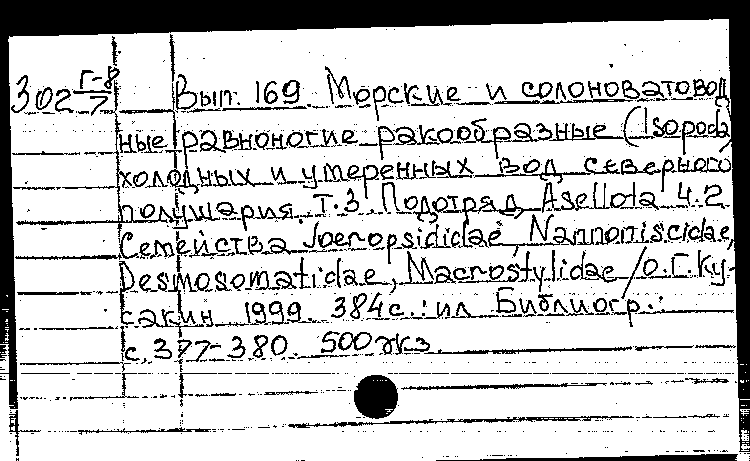 302 Г-8/7 Вып. 169 Морские и солоноватовод
ные равноногие ракообразные (Isopoda)
холодных и умеренных вод северного
полушария. Т.3 Подотряд Asellota Ч.2
Семейства Joeropsididae, Nannoniscidae,
Desmosomatidae, Macrostylidae /О.Г.Ку-
сакин 1999. 384с.:ил Библиогр.:
с.377-380. 500экз.